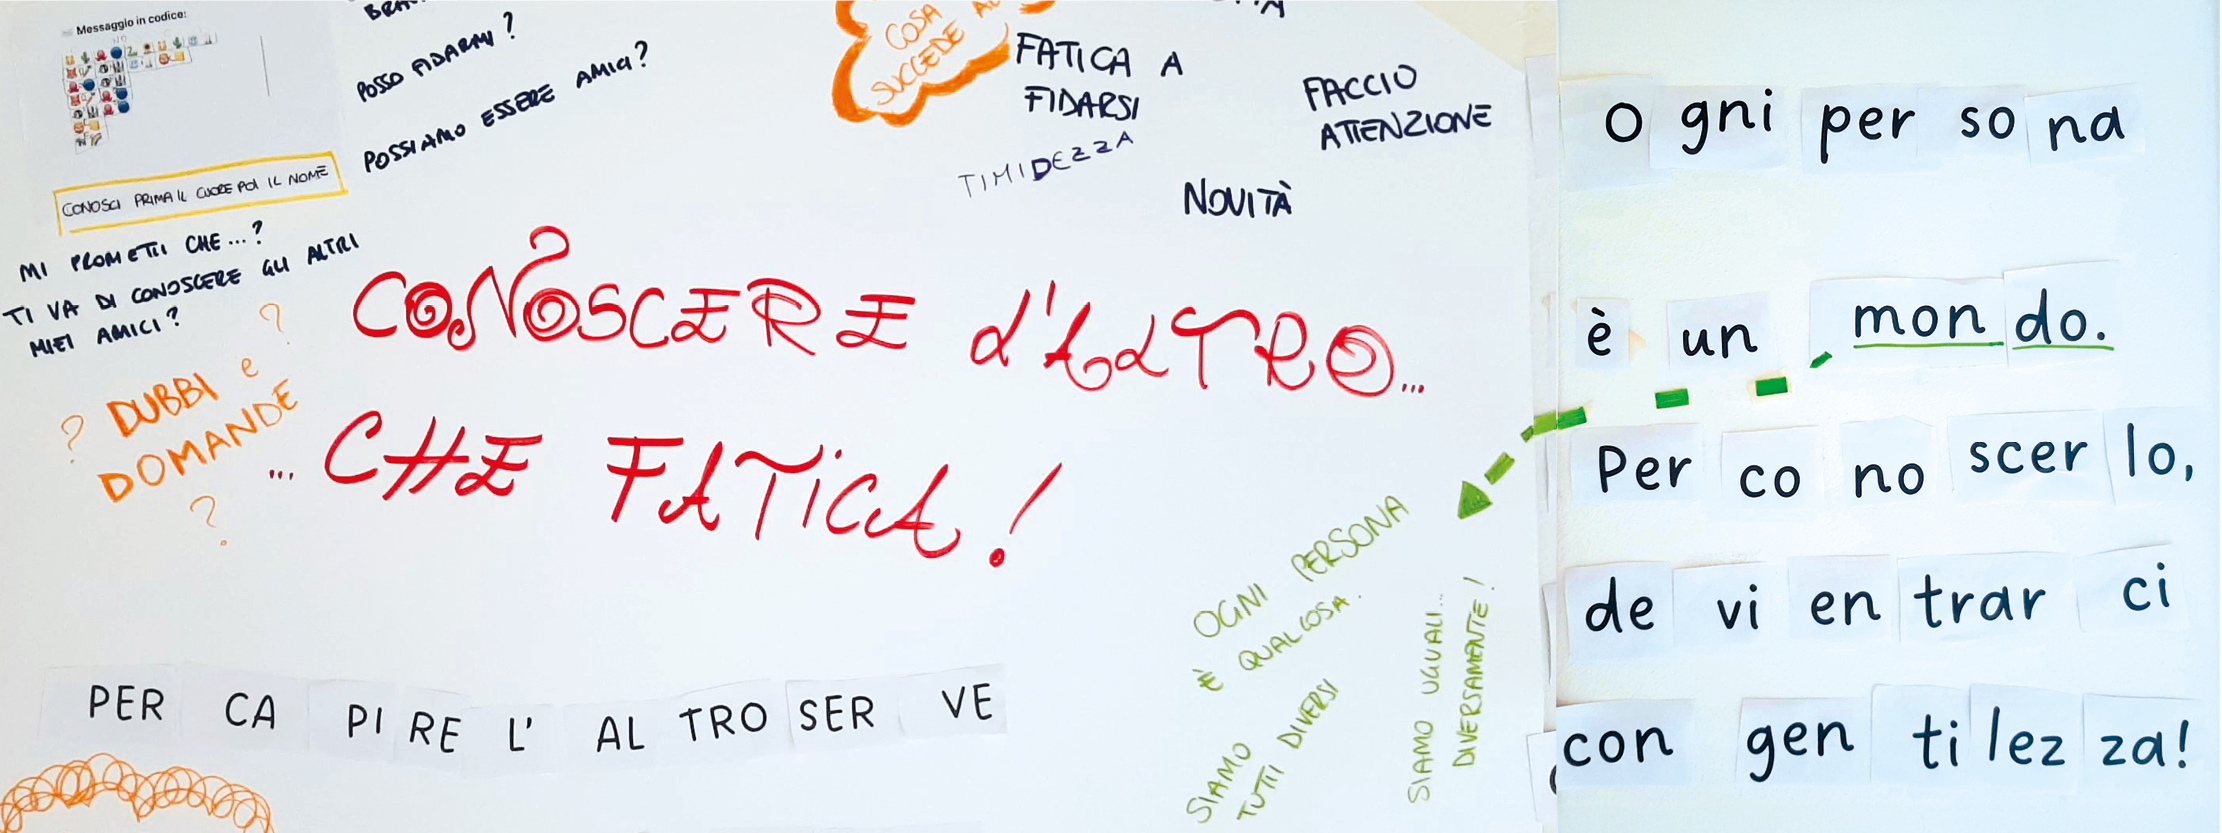 Messaggio in codice:
CONOSCI PRIMA IL CUORE POI IL NOME
POSSO FIDARMI?
POSSIAMO ESSERE AMICI?
MI PROMETTI CHE...?
TI VA DI CONOSCERE GLI ALTRI
MIEI AMICI?
? DUBBI e ?
DOMANDE
?
COSA
SUCCEDE
FATICA A
FIDARSI
TIMIDEZZA
FACCIO
ATTENZIONE
NOVITÀ
CONOSCERE L'ALTRO...
... CHE FATICA!
PER CA PI RE L' AL TRO SER VE
OGNI PERSONA
È QUALCOSA.
SIAMO
TUTTI DIVERSI
SIAMO UGUALI...
DIVERSAMENTE!
O gni per so na
è un mon do.
Per co no scer lo,
de vi en trar ci
con gen ti lez za!